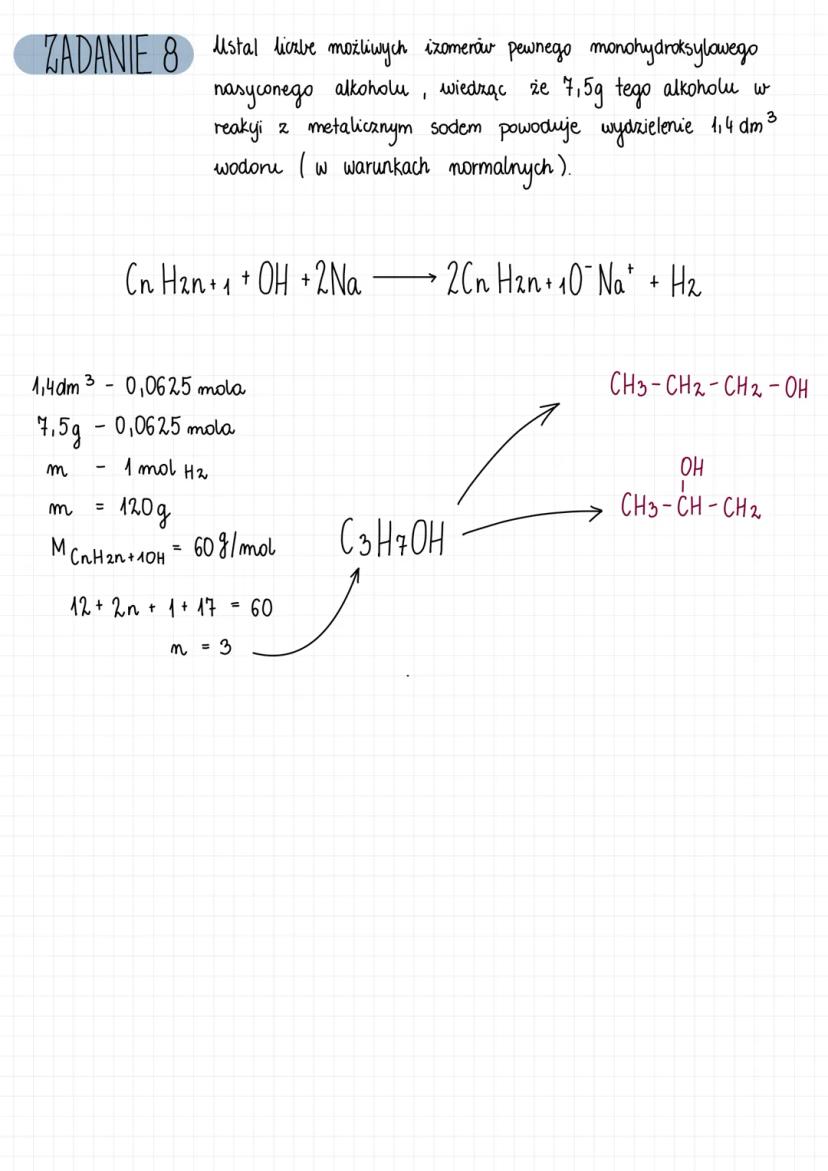 ZADANIE 8 Ustal liczbe możliwych izomerów pewnego monohydroksylowego
nasyconego alkoholu, wiedząc że 7,5g tego alkoholu w
reakyji z metalicznym sodem powoduje wydzielenie 1,4 dm³
wodoru (w warunkach normalnych).
CnH2n+1 + OH + 2Na ⟶ 2CnH2n+1O⁻Na⁺ + H2
1,4dm³ - 0,0625 mola
7,5g - 0,0625 mola
m - 1 mol H2
m = 120g
M CnH2n+1OH = 60g/mol
12 + 2n + 1 + 17 = 60
n = 3
C3H7OH
CH3-CH2-CH2-OH
OH
CH3-CH-CH2